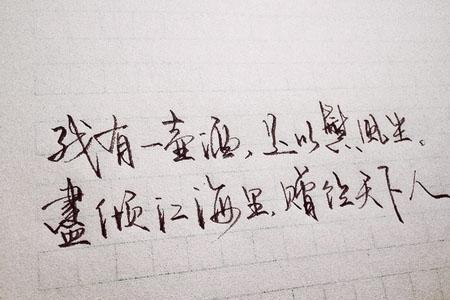 我有一壶酒，足以慰風尘。
盡倾江海里，贈饮天下人